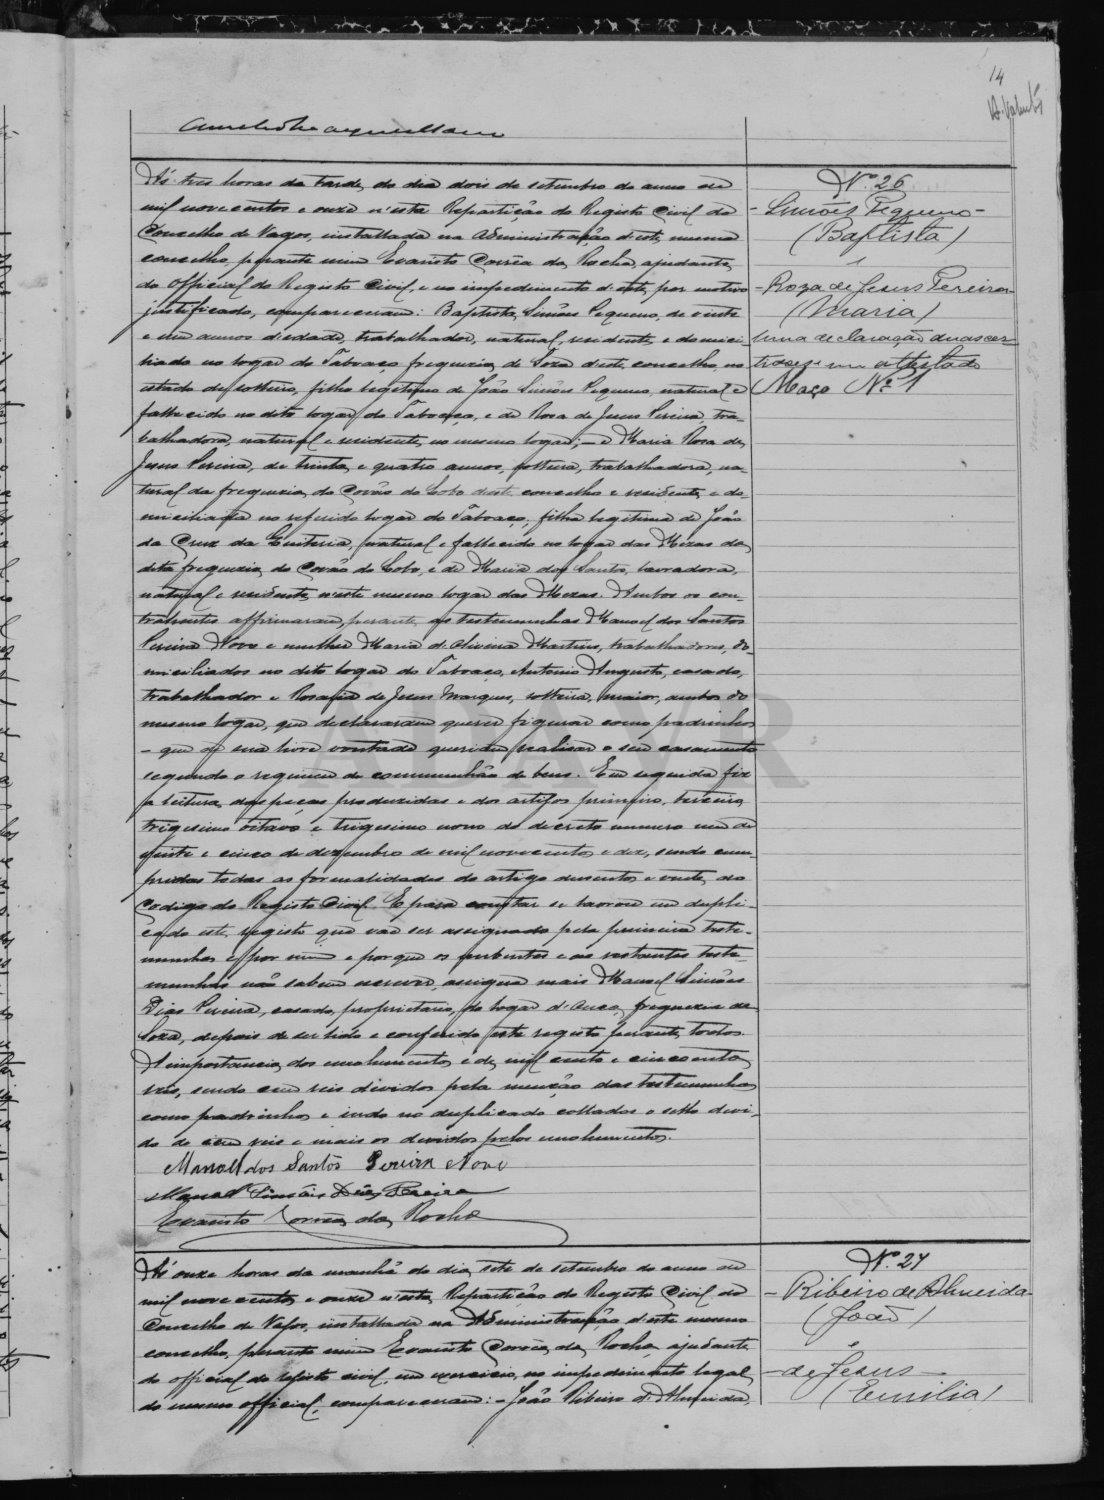 14
Ás tres horas da tarde, do dia dois de setembro do anno de
mil novecentos e onze n'esta Repartição do Registo Civil do
Concelho de Vagos, installada na Administração d'este mesmo
concelho, perante mim Evaristo Corrêa da Rocha, ajudante
do Official do Registo Civil, e no impedimento d'este, por motivo
justificado, compareceram: Baptista Simões Pequeno, de vinte
e um annos d'edade, trabalhador, natural, residente e domici-
liado no logar do Taboaço freguezia de Soza d'este concelho, no
estado de solteiro, filho legitimo de João Simões Pequeno, natural e
fallecido no dito logar do Taboaço, e de Rosa de Jesus Pereira, tra-
balhadora, natural e residente, no mesmo logar; — e Maria Rosa de
Jesus Pereira, de trinta e quatro annos, solteira, trabalhadora, na-
tural da freguezia do Covão do Lobo d'este concelho e residente e do-
miciliada no referido logar do Taboaço, filha legitima de João
da Cruz da Quiteria, natural e fallecido no logar das Mezas da
dita freguezia do Covão do Lobo, e de Maria dos Santos, lavradora,
natural e residente n'este mesmo logar das Mezas. Ambos os con-
trahentes affirmaram, perante as testemunhas Manoel dos Santos
Pereira Novo e mulher Maria d'Oliveira Martins, trabalhadores, do-
miciliados no dito logar do Taboaço, Antonio Augusto, casado,
trabalhador e Rosaria de Jesus Marques, solteira, maior, ambos do
mesmo logar, que declararam querer figurar como padrinhos
— que de sua livre vontade queriam realisar o seu casamento
segundo o regimen da communhão de bens. Em seguida fiz
a leitura das peças produzidas e dos artigos primeiro, terceiro,
trigesimo oitavo e trigesimo nono do decreto numero um de
vinte e cinco de dezembro de mil novecentos e dez, sendo cum-
pridas todas as formalidades do artigo duzentos e vinte do
Codigo do Registo Civil. E para constar se lavrou em dupli-
cado este registo que vae ser assignado pela primeira teste-
munha e por mim e por que os nubentes e as restantes teste-
munhas não sabem escrever, assigna mais Manoel Simões
Dias Pereira, casado, proprietario, do logar d'Ouca, freguezia de
Soza, depois de ser lido e conferido este registo perante todos.
A importancia dos emolumentos é de mil cento e cincoenta
réis, sendo cem reis dividos pela menção das testemunhas
como padrinhos e indo no duplicado collados o sello divi-
do de cem reis e mais os devidos pelos emolumentos.
Manoel dos Santos Pereira Novo
Manoel Simões Dias Pereira
Evaristo Corrêa da Rocha
Nº 26
- Simões Pequeno -
(Baptista)
- Roza de Jesus Pereira
(Maria)
Uma declaração duas cer-
e um attestado
Maço Nº 1
ADAVR
Ás onze horas da manhã do dia sete de setembro do anno de
mil novecentos e onze n'esta Repartição do Registo Civil do
Concelho de Vagos, installada na Administração d'este mesmo
concelho, perante mim Evaristo Corrêa da Rocha, ajudante
do official do registo civil, em exercicio, no impedimento legal
do mesmo official, compareceram: - João Ribeiro d'Almeida,
Nº 27
- Ribeiro de Almeida
(João)
e
- de Jesus -
(Emilia)